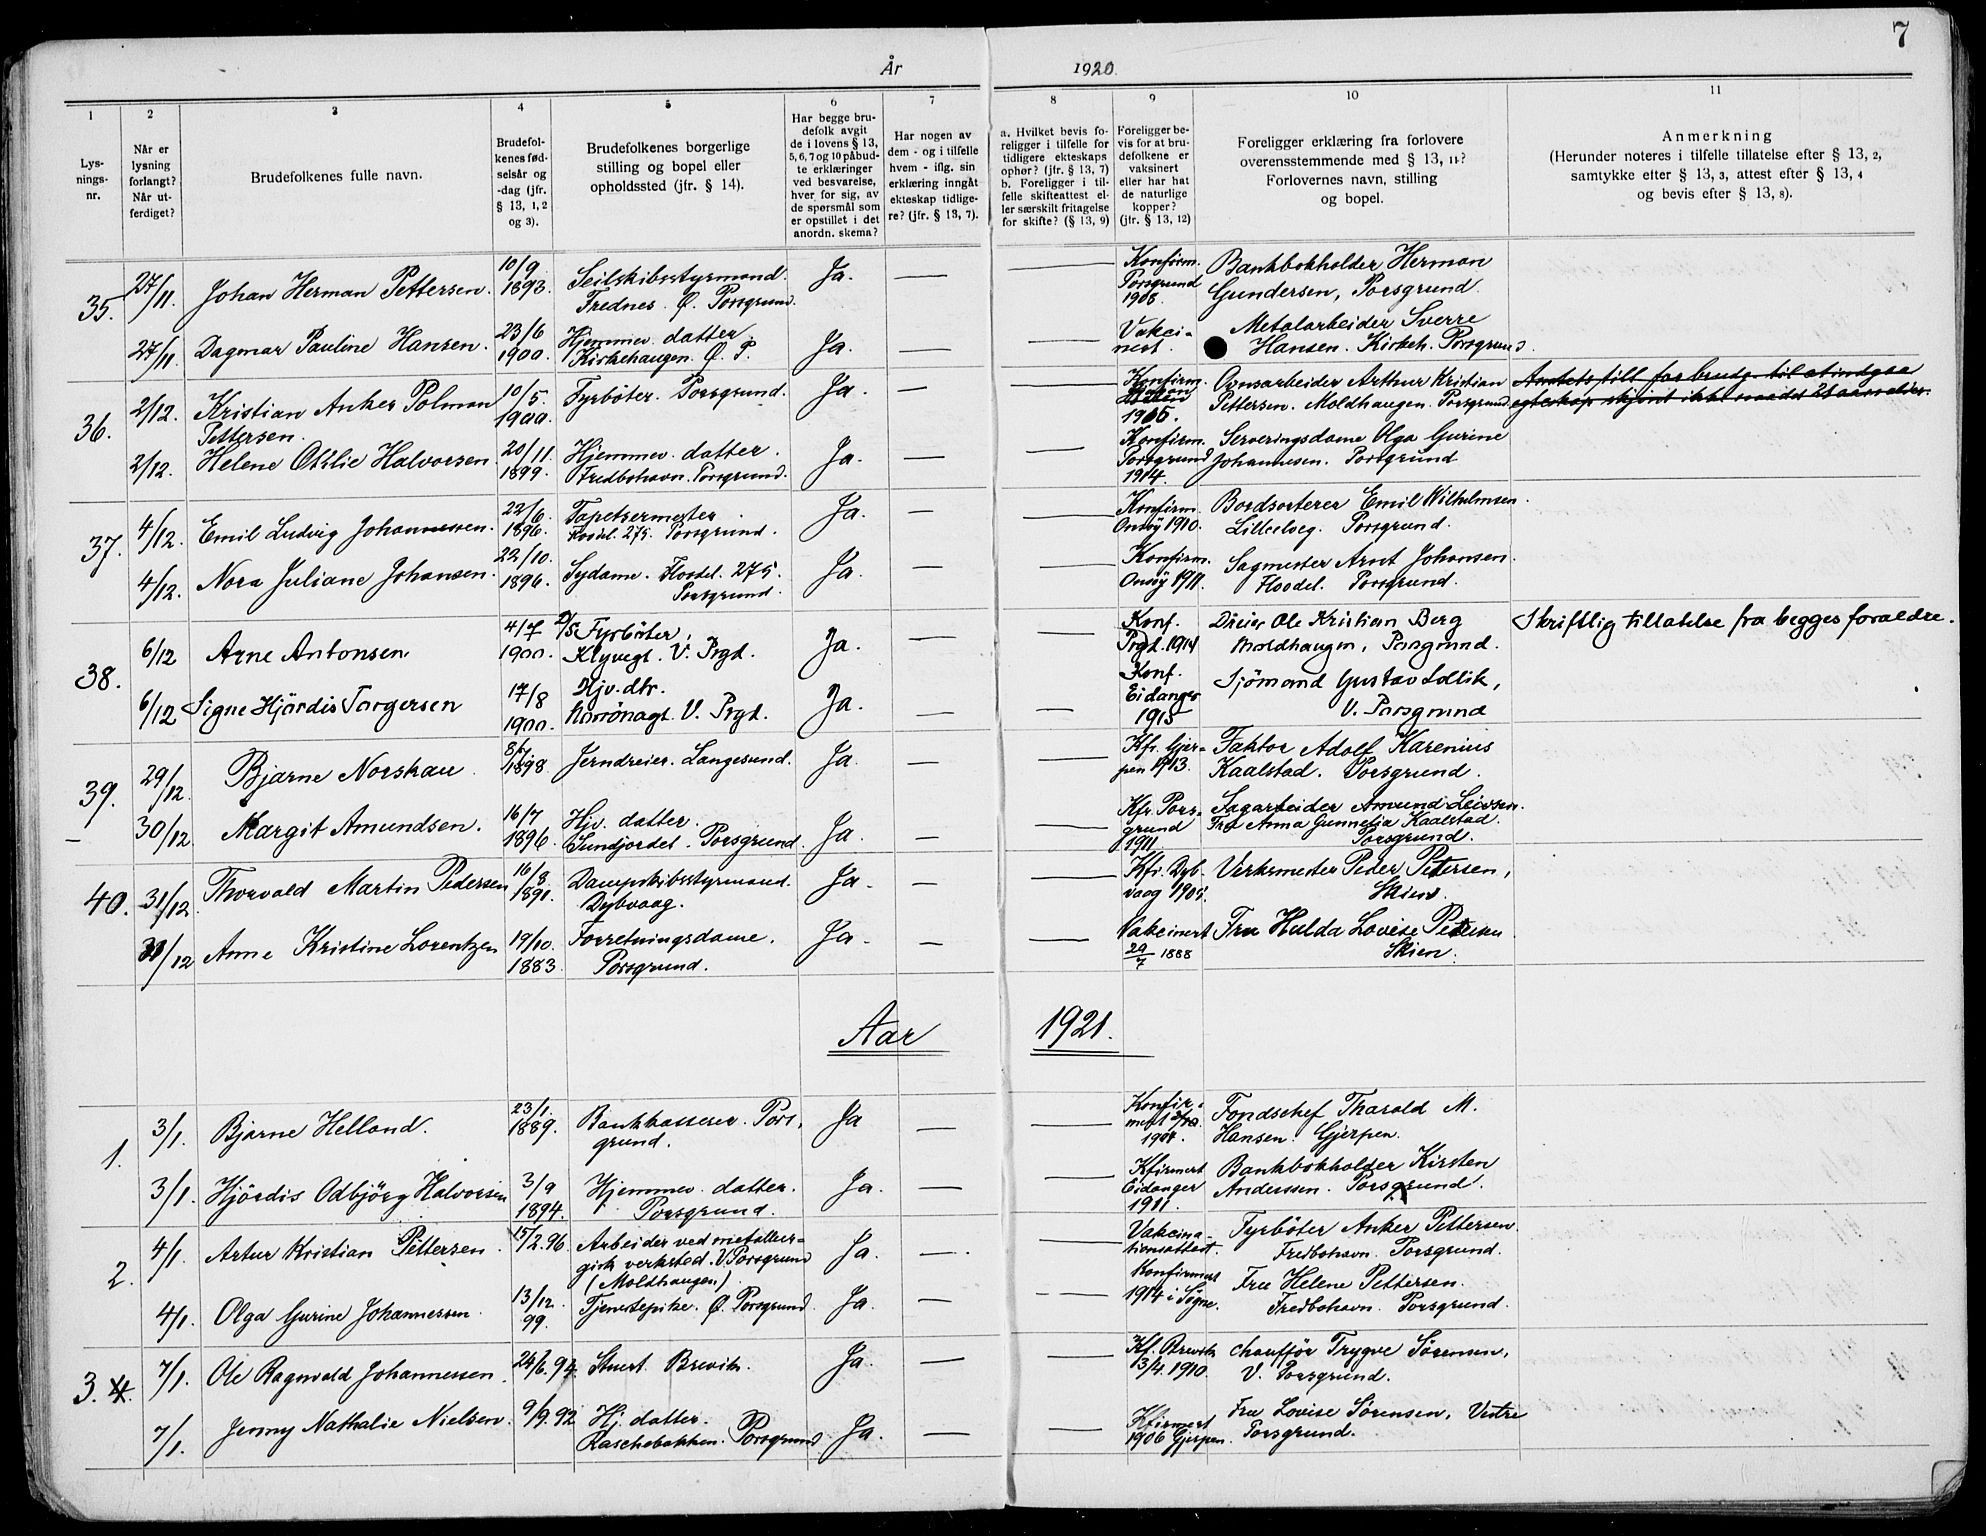 7
År 1920.
1 2 3 4 5 6 7 8 9 10 11
Lys-
nings-
nr.
Når er
lysning
forlangt?
Når ut-
ferdiget?
Brudefolkenes fulle navn.
Brudefol-
kenes fød-
selsår og
-dag (jfr.
§ 13, 1, 2
og 3).
Brudefolkenes borgerlige
stilling og bopel eller
opholdssted (jfr. § 14).
Har begge bru-
defolk avgit
de i lovens § 13,
5, 6, 7 og 10 påbud-
te erklæringer
ved besvarelse,
hver for sig, av
de spørsmål som
er opstillet i det
anordn. skema?
Har nogen av
dem - og i tilfelle
hvem - iflg. sin
erklæring inngått
ekteskap tidlige-
re? (jfr. § 13, 7).
a. Hvilket bevis fo-
religger i tilfelle for
tidligere ekteskaps
ophør? (jfr. § 13, 7)
b. Foreligger i til-
felle skifteattest el-
ler særskilt fritagelse
for skifte? (§ 13, 9)
Foreligger be-
vis for at bru-
defolkene er
vaksinert
eller har hat
de naturlige
kopper?
(jfr. § 13, 12)
Foreligger erklæring fra forlovere
overensstemmende med § 13, 11?
Forlovernes navn, stilling
og bopel.
Anmerkning
(Herunder noteres i tilfelle tillatelse efter § 13, 2,
samtykke efter § 13, 3, attest efter § 13, 4
og bevis efter § 13, 8).
35. 27/11. Johan Herman Pettersen. 10/9 1893. Seilskibsstyrmand. Ja. — — Konfirm. Bankbokholder Herman
Frednes. Ø. Porsgrund. Porsgrund 1908. Gundersen, Porsgrund.
27/11. Dagmar Pauline Hansen. 23/6 1900. Hjemmev. datter Ja. — — Vakci- Metalarbeider Sverre
Kirkehaugen. Ø. P. nert. Hansen. Kirkeh. Porsgrund.
36. 2/12. Kristian Anker Polman 10/5. 1900. Fyrböter. Porsgrund. Ja. — — Konfirm. Ovnsarbeider Arthur Kristian Amtets till for brudg. til at indgaa
Pettersen. 1915. Pettersen. Moldhaugen. Porsgrund. egteskap skjönt ikke naadd 21 aars alder.
2/12. Helene Otilie Halvorsen 20/11 1899. Hjemmev. datter. Ja. — — Konfirm. Serveringsdame Olga Gurine
Fredbohavn. Porsgrund. Porsgrund 1914. Johannesen. Porsgrund
37. 4/12. Emil Ludvig Johannessen. 22/6. 1896. Tapetsermester Ja. — — Konfirm. Bordsorterer Emil Wilhelmsen.
275. Porsgrund. Onsöy 1910. Lilleelveg. Porsgrund.
4/12. Nora Juliane Johansen. 22/10. 1896. Sydame. Floodel. 275. Ja. — — Konfirm. Sagmester Arnt Johansen.
Porsgrund. Onsöy 1911. Floodel. Porsgrund.
38. 6/12 Arne Antonsen 4/7 1900. D/S Fyrböter, Ja. — — Konf. Dreier Ole Kristian Berg Skriftlig tillatelse fra begges foraeldre.
Klyvegt. V. Prgd. Prgd. 1914 Moldhaugen, Porsgrund.
6/12 Signe Hjördis Torgersen 17/8 1900. Hjv. dtr. Ja. — — Konf. Sjömand Gustav
Norrönagt. V. Prgd. Eidanger 1915 V. Porsgrund
39. 29/12. Bjarne Norskau 8/7 1898 Jerndreier. Langesund. Ja. — — Kfr. Gjer- Faktor Adolf Karenius
pen 1913. Kaalstad. Porsgrund.
— 30/12 Margit Amundsen. 16/7 1896. Hjv. datter. Ja. — — Kfr. Pors- Sagarbeider Amund Leivsen.
Sundjordet. Porsgrund. grund 1911 Fru Anna Gunnelia Kaalstad.
Porsgrund.
40. 31/12. Thorvald Martin Pedersen 16/8 1891. Dampskibsstyrmand. Ja. — — Kfr. Dyb- Verksmester Peder Petersen,
Dybvaag. vaag 1905. Skien.
31/12 Anne Kristine Lorentzen 19/10. 1883. Forretningsdame. Ja. — — Vakcinert Fru Hulda Lovise Petersen
Porsgrund. 29/7 1888 Skien.
Aar 1921.
1. 3/1. Bjarne Helland. 23/1. 1889. Bankkasserer. Pors- Ja — — Konfir- Fondschef Tharald M.
grund. mert 1904. Hansen. Gjerpen.
3/1. Hjördis Odbjörg Halvorsen 3/9 1894. Hjemmev. datter. Ja. — — Kfirmert Bankbokholder Kirsten
Porsgrund. Eidanger 1911. Anderssen. Porsgrund.
2. 4/1. Artur Kristian Pettersen. 15/2.96 Arbeider ved metallur- Ja. — — Vakcina- Fyrböter Anker Pettersen.
gisk verksted. V. Porsgrund tionsattest. Fredbohavn. Porsgrund.
(Moldhaugen)
4/1. Olga Gurine Johannessen. 13/12. 99. Tjenestepike. Ø. Porsgrund. Ja. — — Konfirmert Fru Helene Pettersen.
1914 i Søgne. Fredbohavn. Porsgrund.
3. 7/1. Ole Ragnvald Johannessen. 24/6.94. Stuert. Brevik. Ja. — — Kf. Brevik chaufför Trygve Sörensen,
13/4.1910. V. Porsgrund.
7/1. Jenny Nathalie Nielsen. 9/9.92 Hj. datter. Ja. — — Kfirmert Fru Lovise Sörensen, Vestre
Raschebakken. Porsgrund 1906 Gjerpen. Porsgrund.